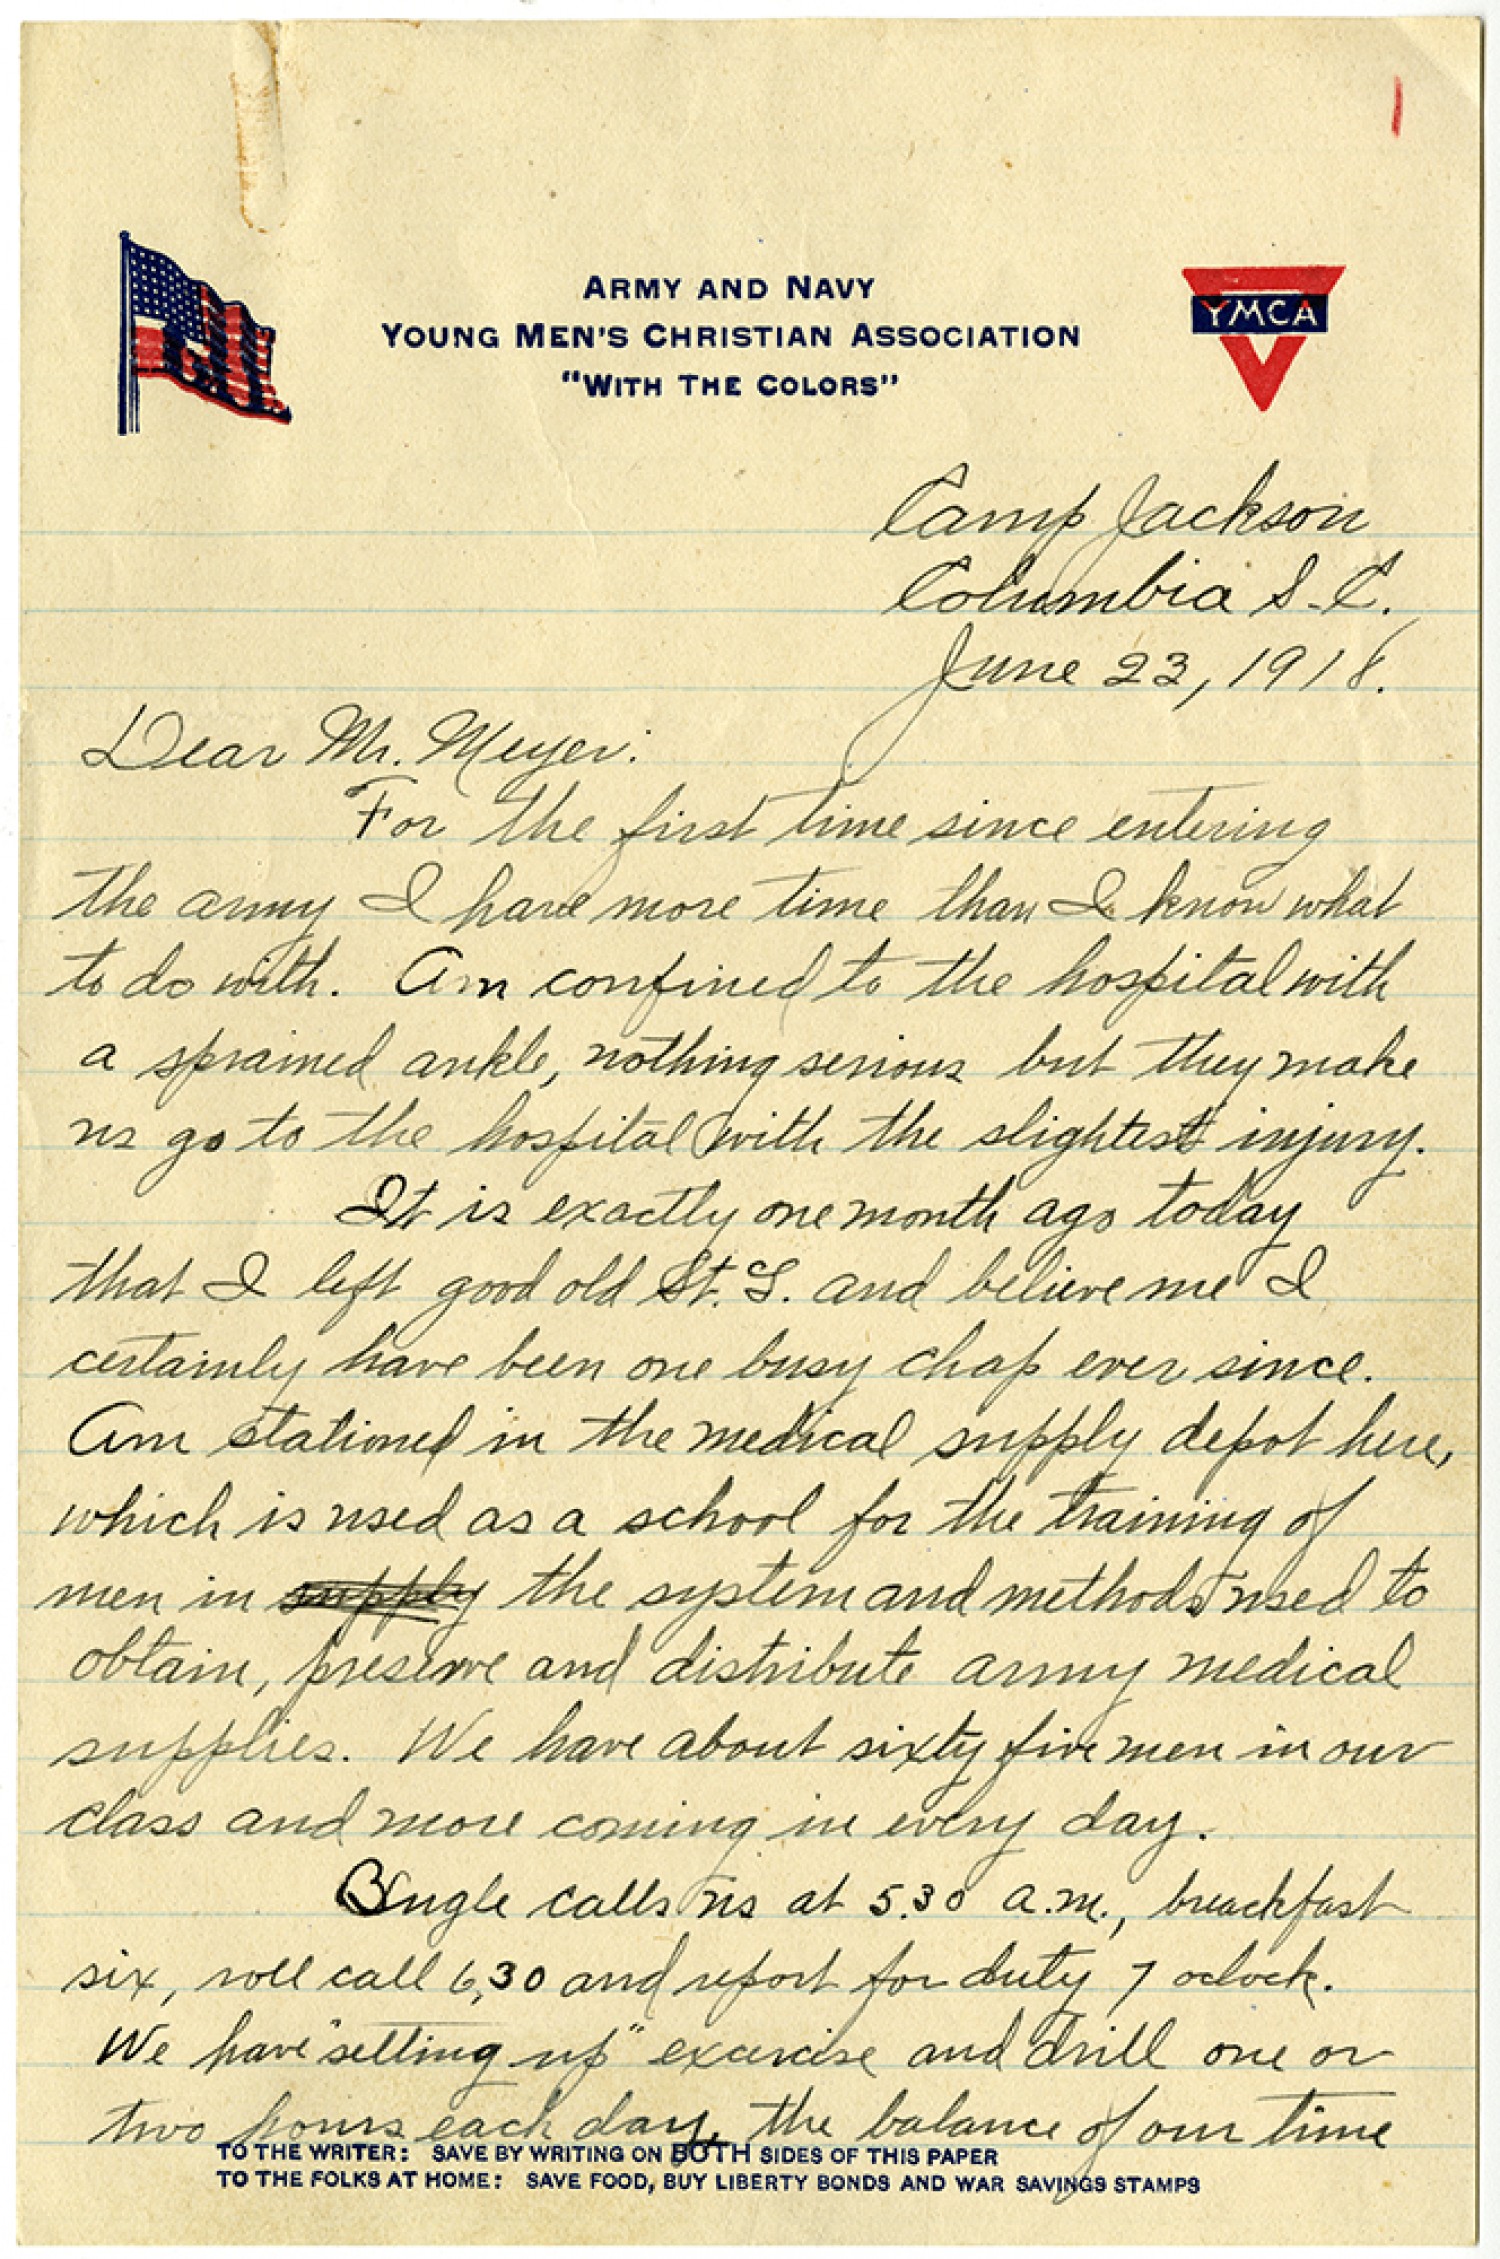 1
ARMY AND NAVY
YOUNG MEN'S CHRISTIAN ASSOCIATION
"WITH THE COLORS"
YMCA
Camp Jackson
Columbia S.C.
June 23, 1918.
Dear Mr. Meyer:
For the first time since entering
the army I have more time than I know what
to do with. Am confined to the hospital with
a sprained ankle, nothing serious but they make
us go to the hospital with the slightest injury.
It is exactly one month ago today
that I left good old St. L. and believe me I
certainly have been one busy chap ever since.
Am stationed in the medical supply depot here,
which is used as a school for the training of
men in supply the system and methods used to
obtain, preserve and distribute army medical
supplies. We have about sixty five men in our
class and more coming in every day.
Bugle calls us at 5.30 a.m., breackfast
six, roll call 6,30 and report for duty 7 oclock.
We have "setting up" exercise and drill one or
two hours each day, the balance of our time
TO THE WRITER: SAVE BY WRITING ON BOTH SIDES OF THIS PAPER
TO THE FOLKS AT HOME: SAVE FOOD, BUY LIBERTY BONDS AND WAR SAVINGS STAMPS